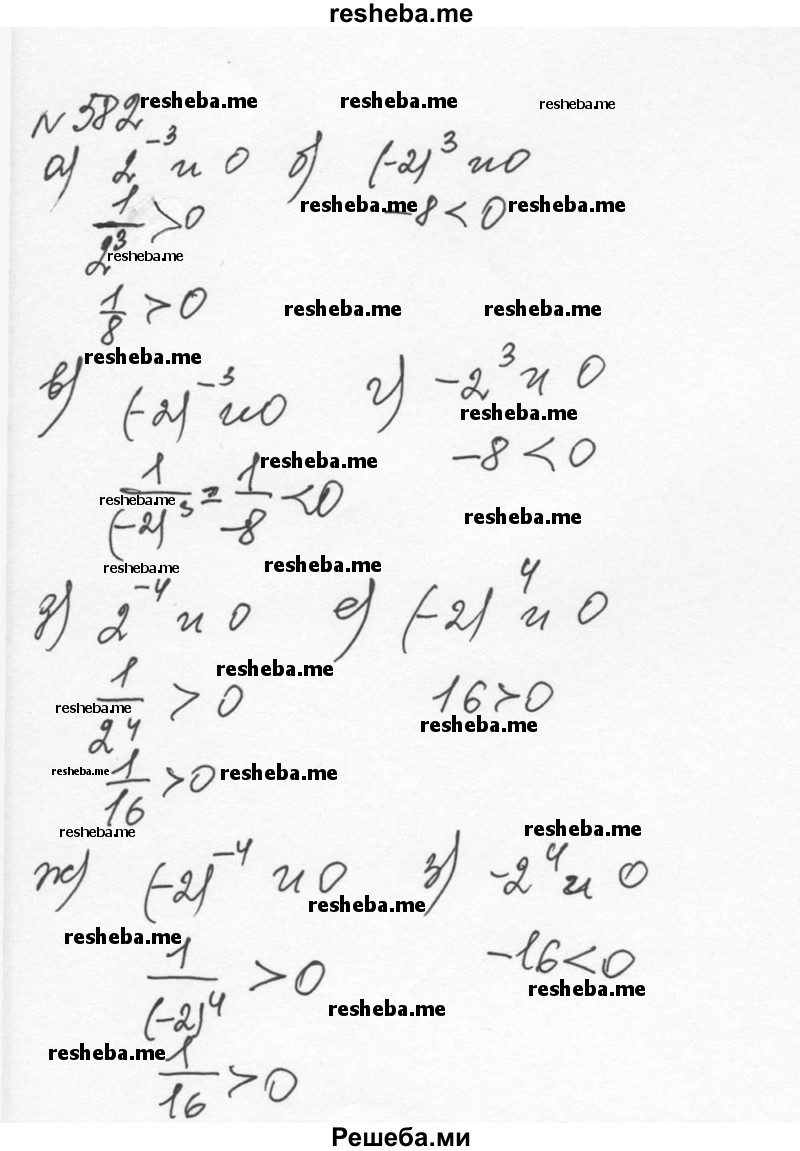 resheba.me
№ 582 resheba.me resheba.me resheba.me
а) 2⁻³ и 0 б) (-2)³ и 0
1/2³ > 0 resheba.me -8 < 0 resheba.me
resheba.me
1/8 > 0 resheba.me resheba.me
resheba.me
в) (-2)⁻³ и 0 г) -2³ и 0
resheba.me
1/(-2)³ = 1/-8 < 0 -8 < 0
resheba.me
resheba.me resheba.me
resheba.me resheba.me
д) 2⁻⁴ и 0 е) (-2)⁴ и 0
resheba.me
1/2⁴ > 0 16 > 0
resheba.me resheba.me
resheba.me 1/16 > 0 resheba.me
resheba.me resheba.me
ж) (-2)⁻⁴ и 0 з) -2⁴ и 0
resheba.me
resheba.me
1/(-2)⁴ > 0 -16 < 0
resheba.me
resheba.me
resheba.me
1/16 > 0
Решеба.ми